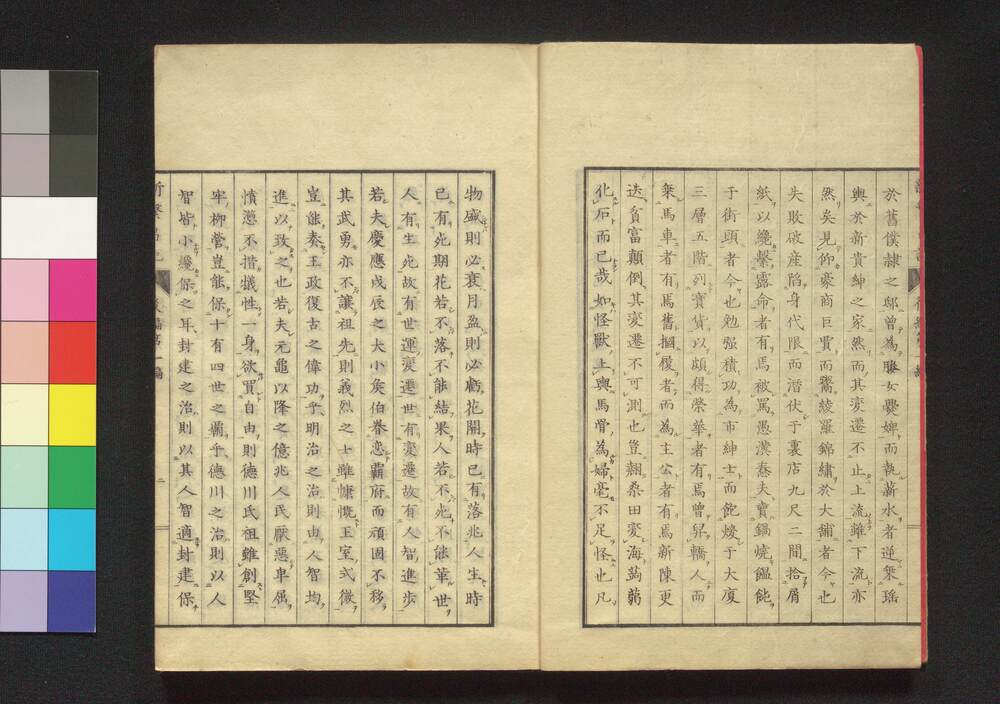 於舊僕隷之邸曾為勝女爨婢而執薪水者逆乗瑶
輿於新貴紳之家然而其変遷不止上流雖下流亦
然矣見仰豪商巨賈而鬻綾羅錦繡於大舗者今也
失敗破産陷身代限而潛伏于裏店九尺二間拾屑
紙以纔繫露命者有焉被罵愚漢蠢夫賣鍋燒饂飩
于街頭者今也勉强積功為市紳士而飽煖于大廈
三層五階列寶貨以頗得榮華者有焉曾舁轎人而
乗馬車者有焉舊搁履者而為主公者有焉新陳更
迭貧富顛倒其変遷不可測也豈翅桑田変海蒭蒻
化石而已哉如怪獸上輿馬骨為婦毫不足怪也凡
物盛則必衰月盈則必虧花開時已有落兆人生時
已有死期花若不落不能結果人若不死不能華世
人有生死故有世運変遷世有変遷故有人智進歩
若夫慶應戊辰之大小矦伯眷恋霸府而頑固不移
其武勇亦不讓祖先則義烈之士雖慷慨王室式微
豈能奏王政復古之偉功乎明治之治則由人智均
進以致之也若夫元龜以降之億兆人民厭惡卑屈
憤懣不措犠牲一身欲買自由則德川氏祖雖創堅
牢柳營豈能保十有四世之霸乎德川之治則以人
智皆小纔保之耳封建之治則以其人智適封建保
後編第一編
二